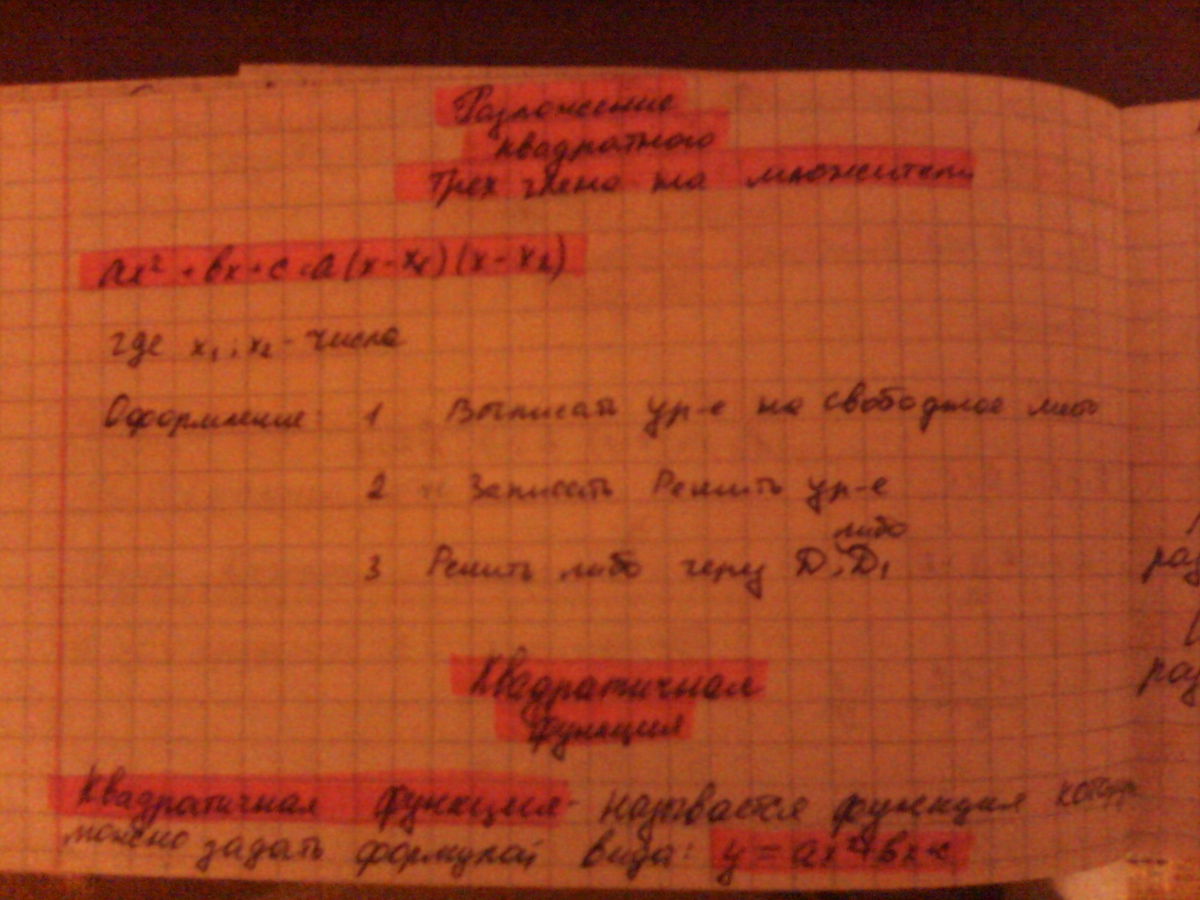 Разложение
квадратного
трех члена на множители
ax² + bx + c = a(x - x₁)(x - x₂)
где x₁; x₂ - числа
Оформление 1 Выписать ур-е на свободное место
2 Записать Решить ур-е
либо
3 Решить либо через D, D₁
раз
раз
Квадратичная
функция
Квадратичная функция - называется функция котор
можно задать формулой вида: y = ax² + bx + c